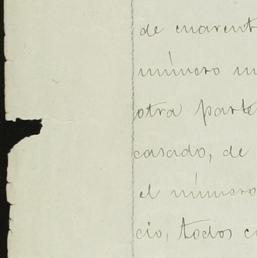 de cuarent
número
otra parte
casado, de
el número
cio, todos c